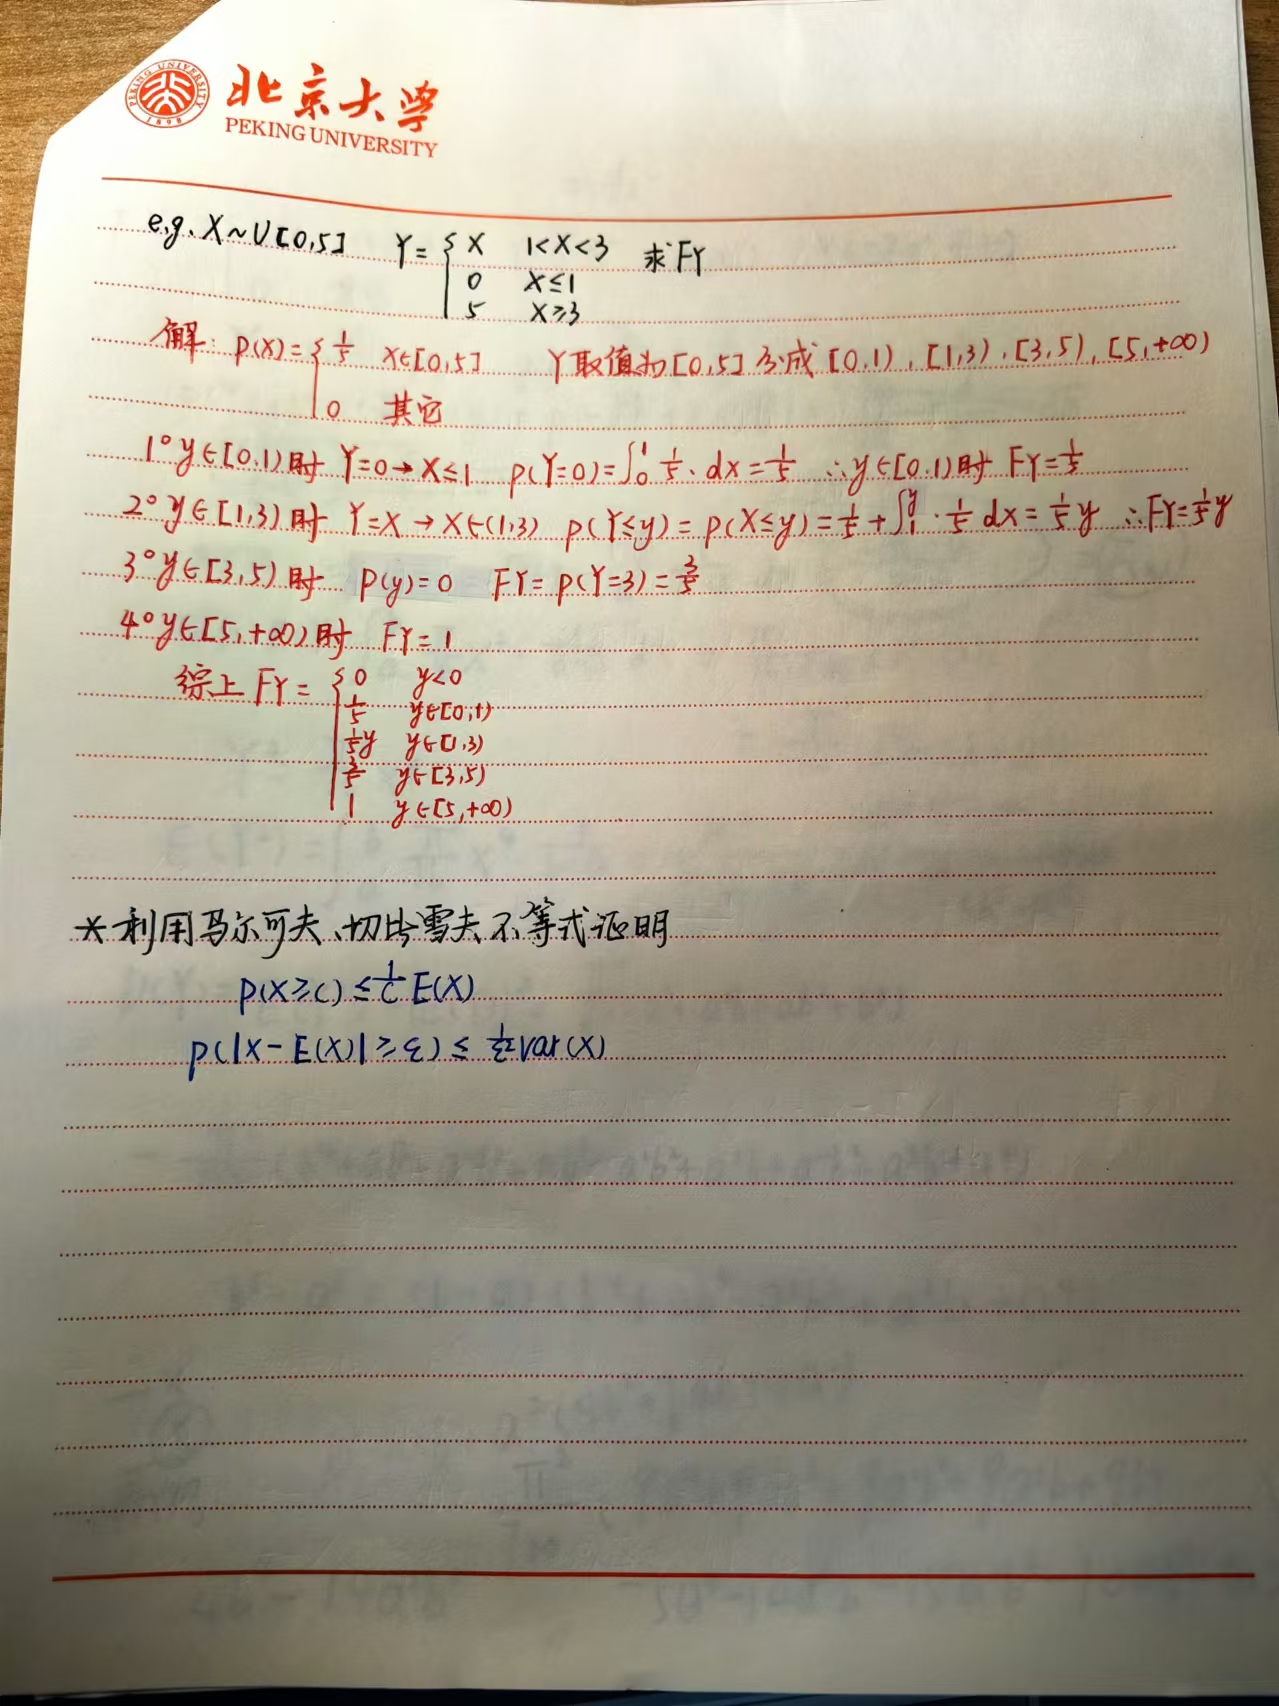 PEKING UNIVERSITY
1898
北京大学
PEKING UNIVERSITY
e.g. X~U[0,5] Y={ X 1<X<3 求FY
0 X≤1
5 X≥3
解: P(X)={ 1/5 X∈[0,5] Y取值为[0,5] 分成[0,1), [1,3), [3,5), [5,+∞)
0 其它
1° y∈[0,1)时 Y=0→X≤1 P(Y=0)=∫₀¹ 1/5·dx=1/5 ∴y∈[0.1)时 FY=1/5
2° y∈[1,3)时 Y=X→X∈(1,3) P(Y≤y)=P(X≤y)=1/5+∫₁^y·1/5 dx=1/5y ∴FY=1/5y
3° y∈[3,5)时 P(y)=0 FY=P(Y=3)=3/5
4° y∈[5,+∞)时 FY=1
综上 FY={ 0 y<0
1/5 y∈[0,1)
1/5y y∈[1,3)
3/5 y∈[3,5)
1 y∈[5,+∞)
*利用马尔可夫、切比雪夫不等式证明
P(X≥C)≤1/C E(X)
P(|X-E(X)|≥ε)≤1/ε² var(X)